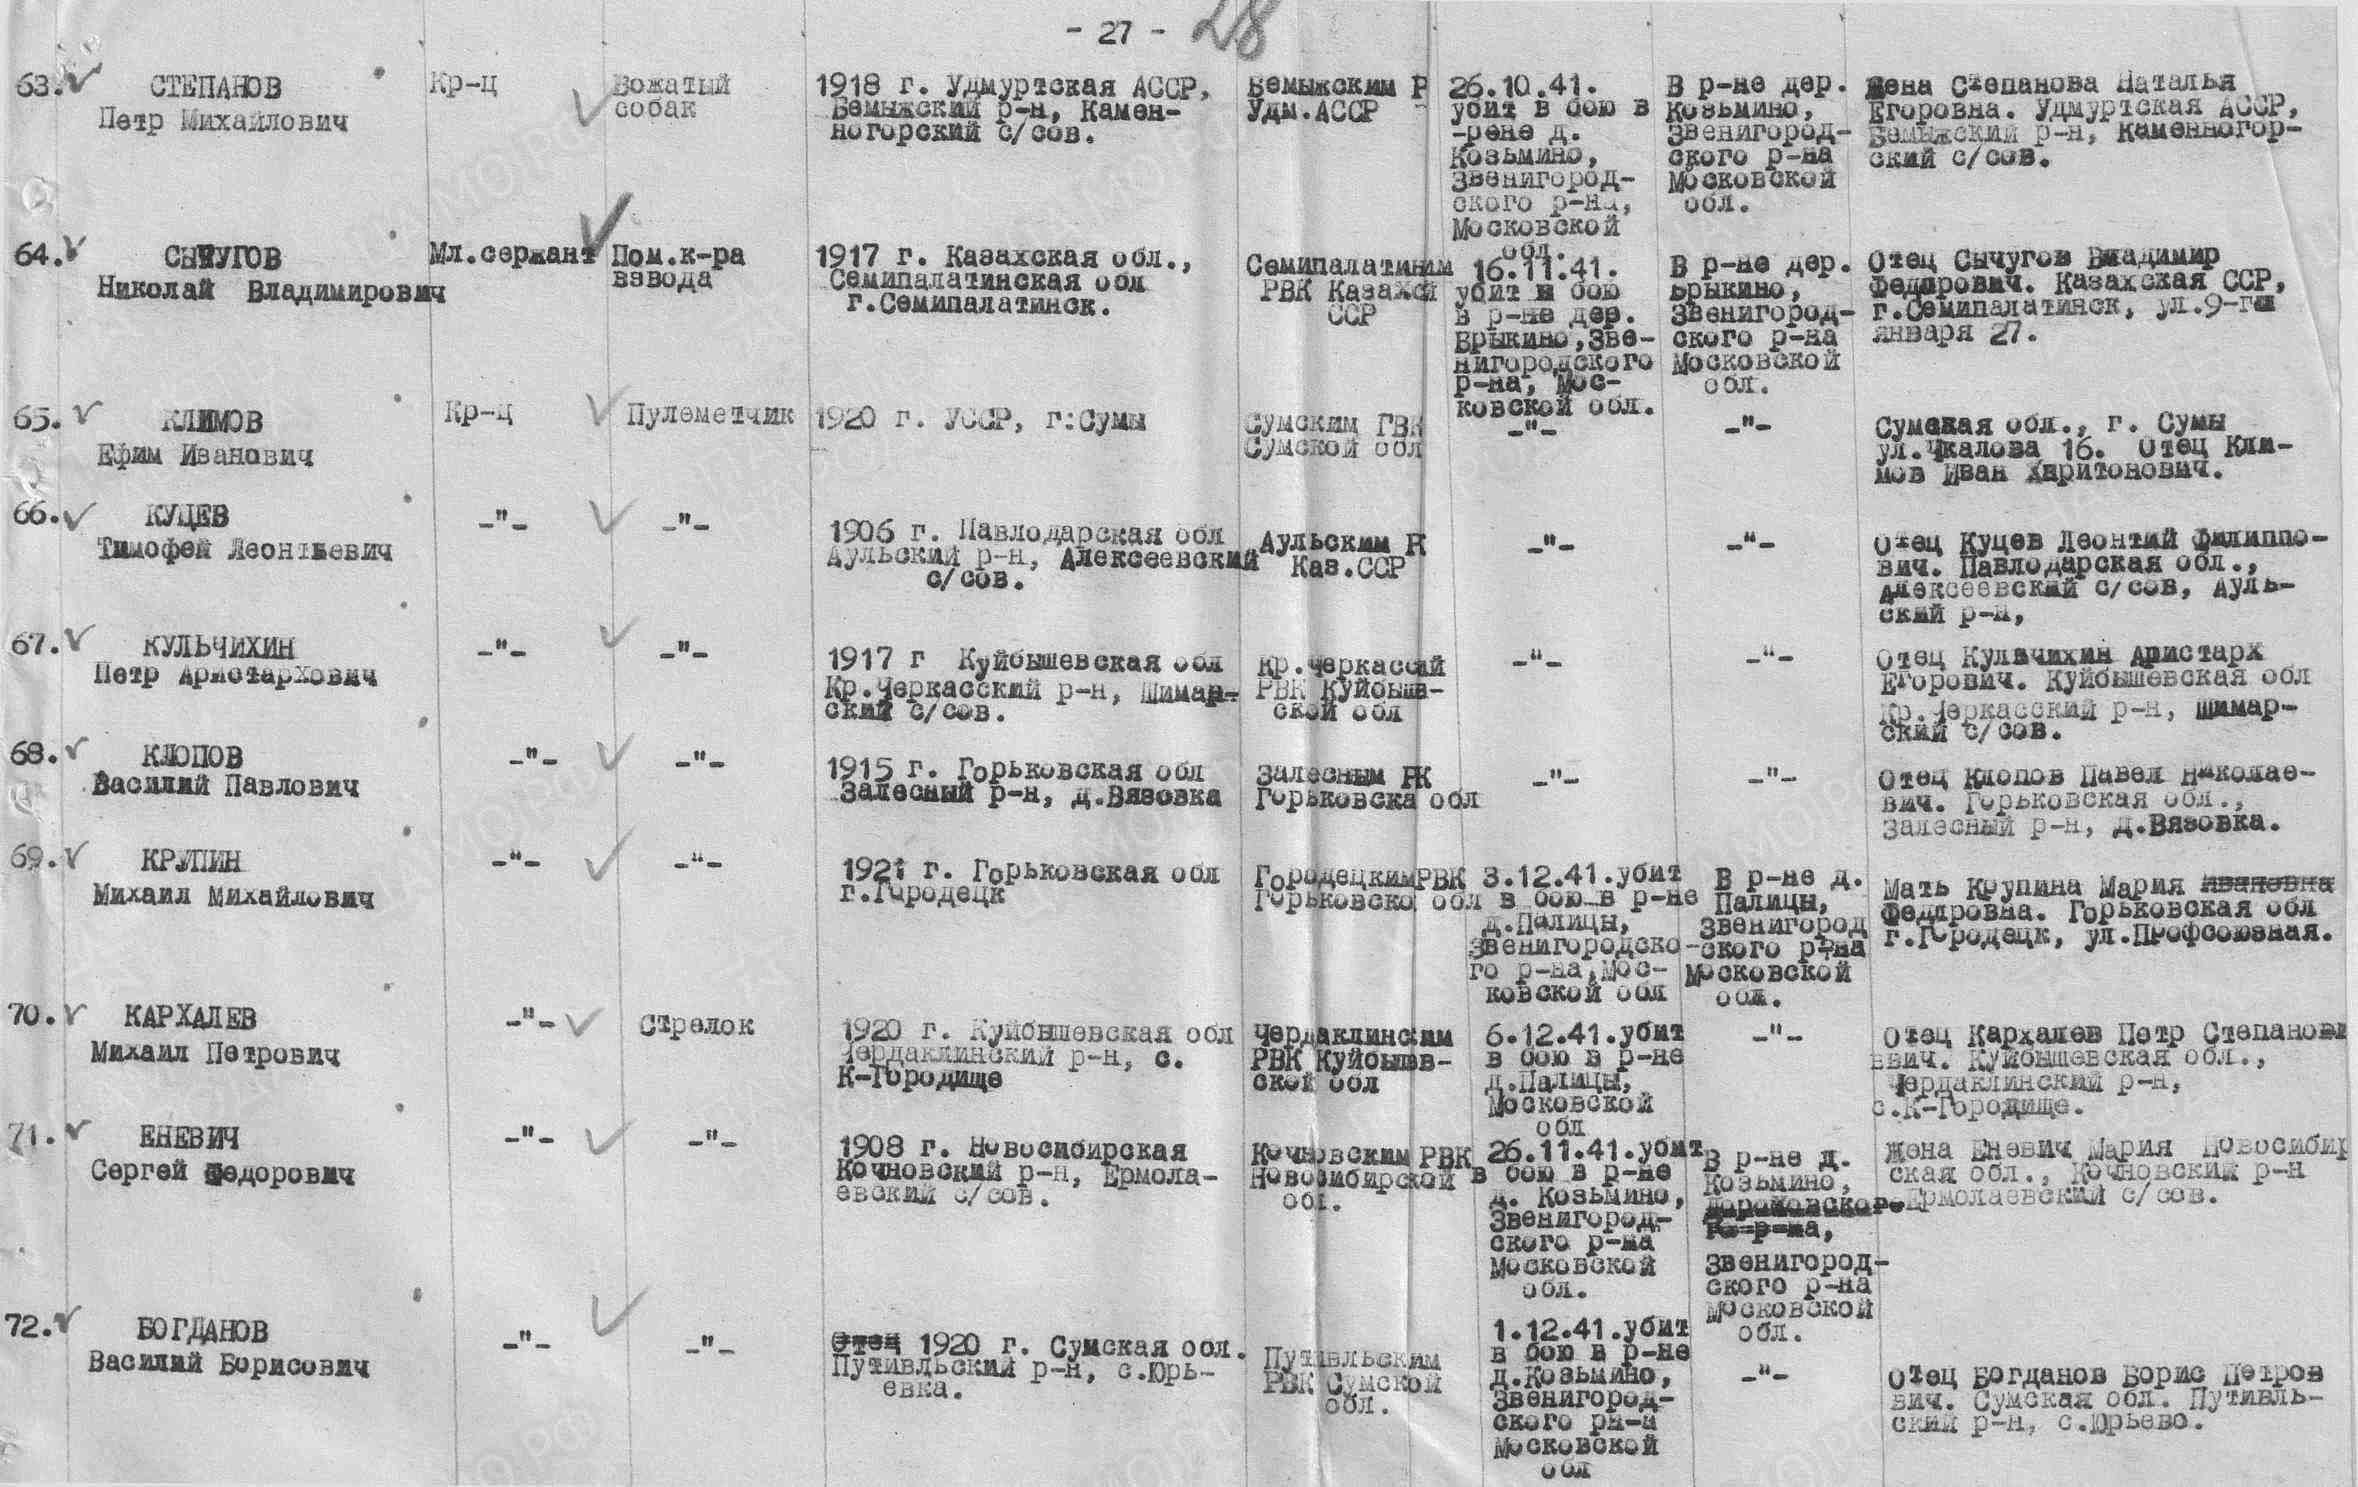 - 27 - 28
63. СТЕПАНОВ
Петр Михайлович
Кр-ц
Вожатый
собак
1918 г. Удмуртская АССР,
Бемыжский р-н, Камен-
ногорский с/сов.
Бемыжским Р
Удм.АССР
26.10.41.
убит в бою в
-рене д.
Козьмино,
Звенигород-
ского р-на,
Московской
обл.
В р-не дер.
Козьмино,
Звенигород-
ского р-на
Московской
обл.
Жена Степанова Наталья
Егоровна. Удмуртская АССР,
Бемыжский р-н, Каменногор-
ский с/сов.
64. СЫЧУГОВ
Николай Владимирович
Мл.сержант
Пом.к-ра
взвода
1917 г. Казахская обл.,
Семипалатинская обл
г.Семипалатинск.
Семипалатиним
РВК Казахсй
ССР
16.11.41.
убит в бою
в р-не дер.
Брыкино,Зве-
нигородского
р-на, Мос-
ковской обл.
В р-не дер.
Брыкино,
Звенигород-
ского р-на
Московской
обл.
Отец Сычугов Владимир
Федорович. Казахская ССР,
г.Семипалатинск, ул.9-го
января 27.
65. КЛИМОВ
Ефим Иванович
Кр-ц
Пулеметчик
1920 г. УССР, г:Сумы
Сумским ГВК
Сумской обл
-"-
-"-
Сумская обл., г. Сумы
ул.Чкалова 16. Отец Кли-
мов Иван Харитонович.
66. КУЦЕВ
Тимофей Леонтьевич
-"-
-"-
1906 г. Павлодарская обл
Аульский р-н, Алексеевский
с/сов.
Аульским Р
Каз.ССР
-"-
-"-
Отец Куцев Леонтий Филиппо-
вич. Павлодарская обл.,
Алексеевский с/сов, Ауль-
ский р-н,
67. КУЛЬЧИХИН
Петр Аристархович
-"-
-"-
1917 г Куйбышевская обл
Кр.Черкасский р-н, Шимар-
ский с/сов.
Кр.Черкассай
РВК Куйбышв-
ской обл
-"-
-"-
Отец Кульчихин Аристарх
Егорович. Куйбышевская обл
Кр.Черкасский р-н, Шимар-
ский с/сов.
68. КЛОПОВ
Василий Павлович
-"-
-"-
1915 г. Горьковская обл
Залесный р-н, д.Вязовка
Залесным РК
Горьковска обл
-"-
-"-
Отец Клопов Павел Николае-
вич. Горьковская обл.,
Залесный р-н, д.Вязовка.
69. КРУПИН
Михаил Михайлович
-"-
-"-
1921 г. Горьковская обл
г.Городецк
ГородецкимРВК
Горьковско обл
3.12.41.убит
в бою в р-не
д.Палицы,
Звенигородско-
го р-на,Мос-
ковской обл
В р-не д.
Палицы,
Звенигород
ского р-на
Московской
обл.
Мать Крупина Мария Ивановна
Федоровна. Горьковская обл
г.Городецк, ул.Профсоюзная.
70. КАРХАЛЕВ
Михаил Петрович
-"-
Стрелок
1920 г. Куйбышевская обл
Чердаклинский р-н, с.
К-Городище
Чердаклинским
РВК Куйбышев-
ской обл
6.12.41.убит
в бою в р-не
д.Палицы,
Московской
обл
-"-
Отец Кархалев Петр Степанови
евич. Куйбышевская обл.,
Чердаклинский р-н,
с.К-Городище.
71. ЕНЕВИЧ
Сергей Федорович
-"-
-"-
1908 г. Новосибирская
Кочновский р-н, Ермола-
евский с/сов.
Кочновским РВК
Новосибирской
обл.
26.11.41.убит
в бою в р-не
д. Козьмино,
Звенигород-
ского р-на
Московской
обл.
В р-не д.
Козьмино,
Дороховско-
го р-на,
Звенигород-
ского р-на
Московской
обл.
Жена Еневич Мария Новосибир
ская обл., Кочновский р-н
Ермолаевский с/сов.
72. БОГДАНОВ
Василий Борисович
-"-
-"-
Отец 1920 г. Сумская обл.
Путивльский р-н, с.Юрь-
евка.
Путивльским
РВК Сумской
обл.
1.12.41.убит
в бою в р-не
д.Козьмино,
Звенигород-
ского рн-а
Московской
обл
-"-
Отец Богданов Борис Петров
вич. Сумская обл. Путивль-
ский р-н, с.Юрьево.